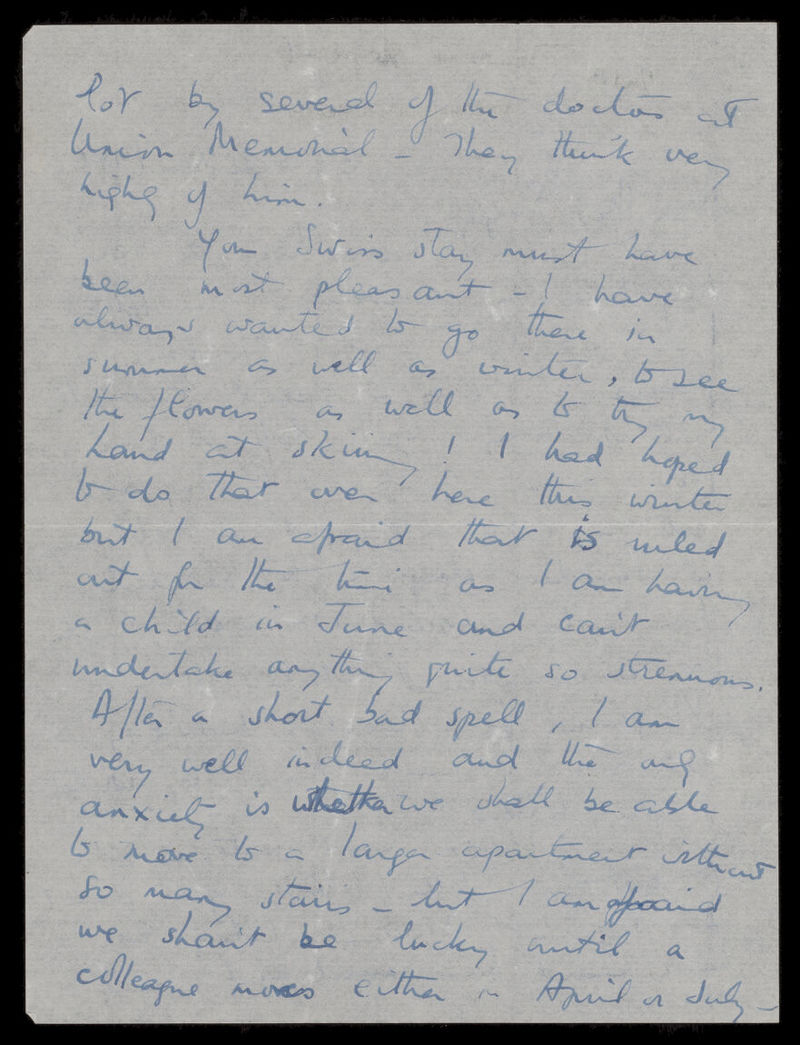 lot by several of the doctors at
Union Memorial - They think very
highly of him.
Your Swiss stay must have
been most pleasant - I have
always wanted to go there in
summer as well as winter, to see
the flowers as well as to try my
hand at skiing! I had hoped
to do that over here this winter
but I am afraid that is ruled
out for the time as I am having
a child in June and can't
undertake anything quite so strenuous.
After a short bad spell, I am
very well indeed and the only
anxiety is whether we shall be able
to move to a larger apartment without
so many stairs - but I am afraid
we shan't be lucky until a
colleague moves either in April or July -